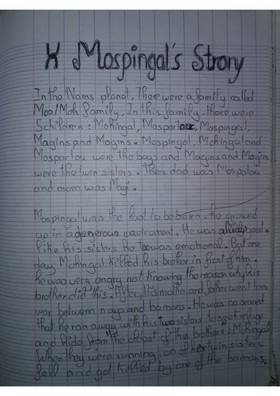 X Mospingal's Strory
In the Nams planet, Ther were a family called
Moo/Moh family. In this family there were
5 children: Mohingal, Mosportoux, Mospingal,
Magins and Mogyns. Mospingal, Mohingal and
Mosportou were the boys and Magyns and Magins
were the twin sisters. Their dad was Mospalou
and mom was Magi.
Mospingal was the last to be born. He growed
up in a generous environment. He was always cool.
Like his sisters he was emotional. But one
day Mohingal killed his brother in front of him.
he was very angry not knowing the reason why his
brother did this. After, his mother and father went to a
war between nays and bomans. He was so scared
that he ran away with his two sisters to get refuge
and hide from the threat of his brother: Mohingal
When they were running, one of his twin sisters
fell and got killed by one of the bomans,